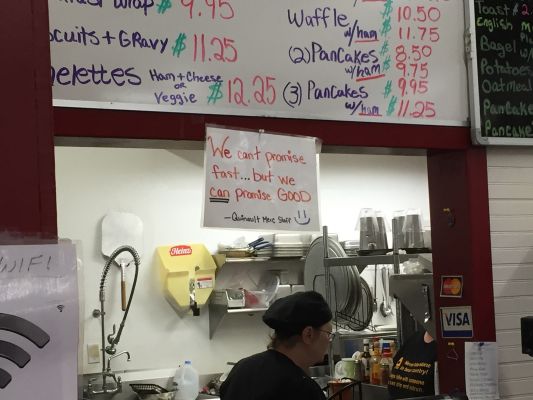 Wrap $ 9.95
Biscuits + Gravy $ 11.25
Omelettes Ham + Cheese or Veggie $ 12.25
Waffle $ 10.50
w/ham $ 11.75
(2) Pancakes $ 8.50
w/ham $ 9.75
(3) Pancakes $ 9.95
w/ham $ 11.25
Toast
English
Bagel w/
Potatoes
Oatmeal
Pancake
Pancake
We can't promise
fast... but we
can promise GOOD
- Quinault Merc Staff
Heinz
WIFI
MasterCard
VISA